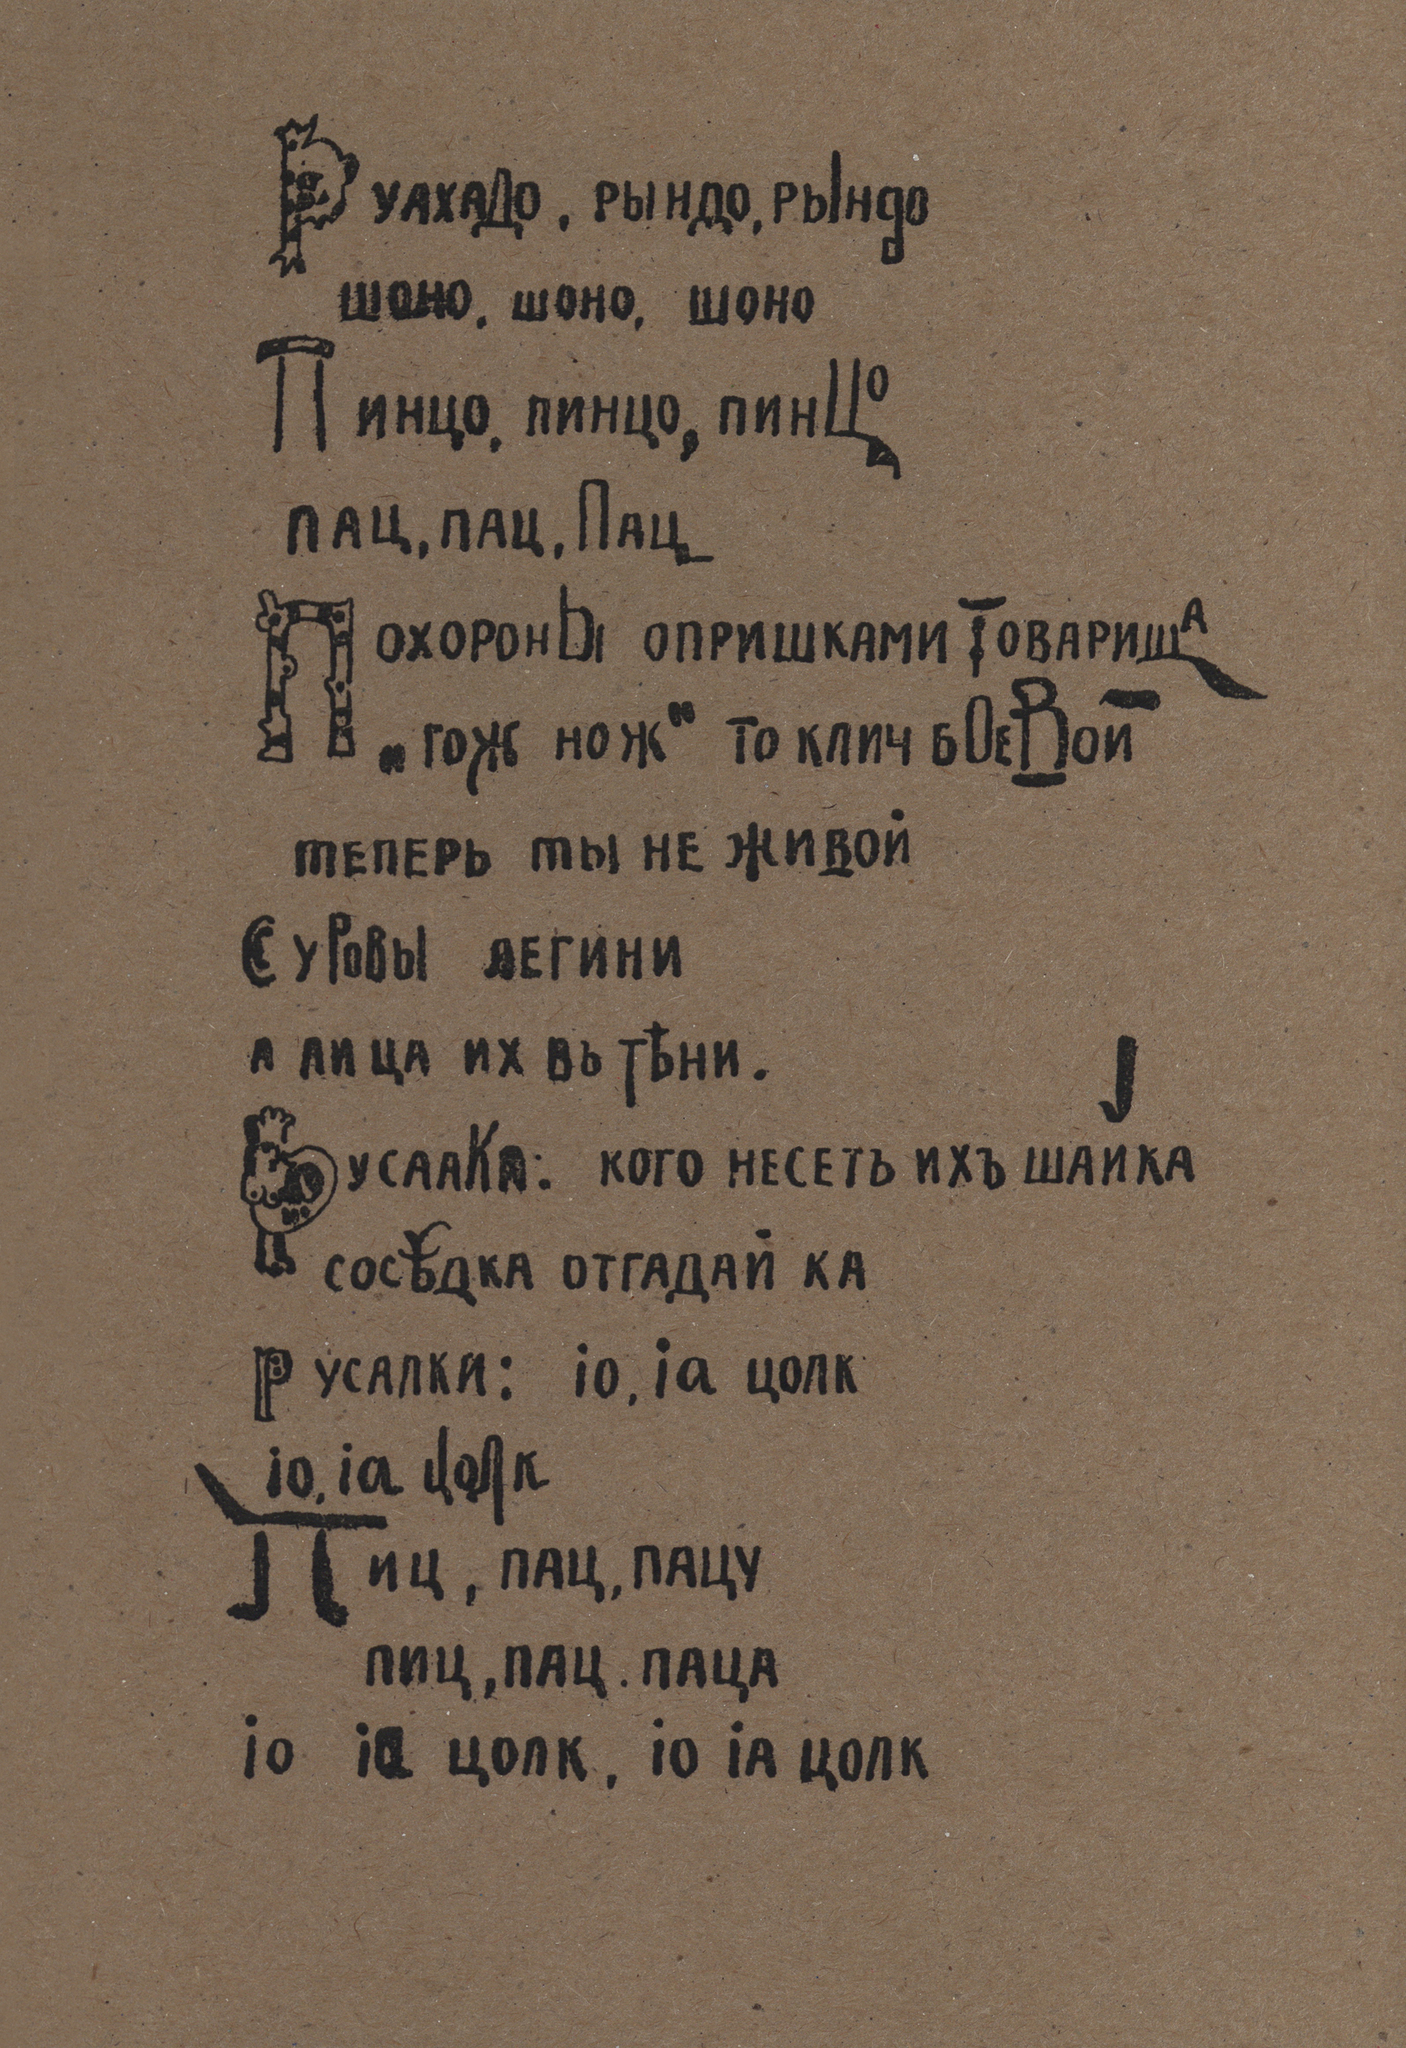 Руахадо, рындо, рындо
шоно, шоно, шоно
Пинцо, пинцо, пинцо
пац, пац, Пац
Похороны опришками товарища
„гож нож" то клич боевой
теперь ты не живой
Суровы легини
а лица их вь тѣни.
Русалка: кого несеть ихъ шайка
сосѣдка отгадай ка
Русалки: іо, іа цолк
іо, іа цолк
Пиц, пац, пацу
пиц, пац. паца
іо іа цолк, іо іа цолк